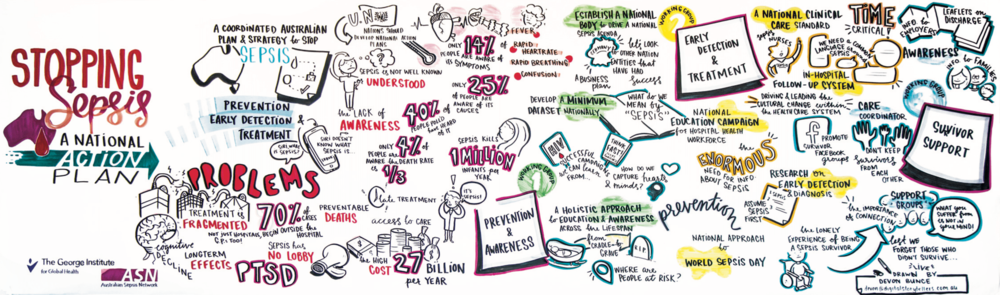 STOPPING
Sepsis
A NATIONAL
ACTION
PLAN
The George Institute
for Global Health
ASN
Australian Sepsis Network
A COORDINATED AUSTRALIAN
PLAN & STRATEGY to STOP
SEPSIS
PREVENTION
EARLY DETECTION &
TREATMENT
SIRI DOESN'T
KNOW WHAT
SEPSIS IS
PROBLEMS
TREATMENT is
FRAGMENTED
NOT JUST HOSPITAL
G.P.s TOO!
70% of CASES
BEGIN OUTSIDE the
HOSPITAL
cognitive
DECLINE
LONGTERM
EFFECTS
PTSD
SEPSIS has
NO LOBBY
U.N.
NATIONS SHOULD
DEVELOP NATIONAL ACTION
PLANS
SEPSIS is NOT WELL KNOWN
UNDERSTOOD
the LACK OF
AWARENESS
ONLY
14%
PEOPLE ARE AWARE of
its SYMPTOMS
ONLY
25%
PEOPLE ARE
AWARE of ITS
CAUSES
40%
PEOPLE POLLED
HAD HEARD
OF IT
ONLY
4%
of PEOPLE
ARE AWARE the DEATH RATE
is 1/3
PREVENTABLE
DEATHS
Late TREATMENT
access to CARE
IT'S
SEPSIS!
the HIGH
COST
27 BILLION
per YEAR
FEVER
RAPID HEARTRATE
RAPID BREATHING
CONFUSION
SEPSIS KILLS
1 MILLION
INFANTS per
YEAR
ESTABLISH A NATIONAL
BODY to DRIVE A NATIONAL
SEPSIS AGENDA
A BUSINESS
plan
let's LOOK
at OTHER NATIONAL
ENTITIES THAT
HAVE HAD
success
DEVELOP A MINIMUM
DATASET NATIONALLY
WHAT do WE
MEAN by
"SEPSIS"
WORKING GROUP
1
SUCCESSFUL
CAMPAIGNS
we can learn
FROM...
THINK
FAST
HOW DO WE
CAPTURE hearts
& minds?
PREVENTION
&
AWARENESS
A HOLISTIC APPROACH
to EDUCATION & AWARENESS
ACROSS THE LIFESPAN
from
CRADLE to
GRAVE
WHERE are
PEOPLE AT RISK?
WORKING GROUP
2
EARLY
DETECTION
&
TREATMENT
NATIONAL
EDUCATION CAMPAIGN
for HOSPITAL HEALTH
WORKFORCE
the
ENORMOUS
NEED for INFO
ABOUT SEPSIS
prevention
ASSUME
SEPSIS
FIRST
NATIONAL APPROACH
to
WORLD SEPSIS DAY
A NATIONAL CLINICAL
CARE STANDARD
TIME
CRITICAL!
WE NEED A
COMMON
LANGUAGE for
SEPSIS
IN-HOSPITAL
FOLLOW-UP SYSTEM
DRIVING & LEADING the
CULTURAL CHANGE within
the HEALTHCARE SYSTEM
PROMOTE
SURVIVOR
FACEBOOK
groups
CARE
COORDINATOR
DON'T KEEP
survivors
FROM
EACH
OTHER
RESEARCH on
EARLY DETECTION
& DIAGNOSIS
the IMPORTANCE
OF CONNECTION
SUPPORT
GROUPS
the LONELY
EXPERIENCE of BEING
A SEPSIS SURVIVOR
WHAT YOU
SUFFER from
is NOT in
YOUR MIND!
lest WE
FORGET THOSE WHO
DIDN'T SURVIVE...
INFO to
EMPLOYERS
LEAFLETS on
DISCHARGE
AWARENESS
INFO for FAMILIES
WORKING GROUP
SUVIVOR
SUPPORT
"LIVE"
DRAWN BY
DEVON BUNCE
devon@digitalstorytellers.com.au